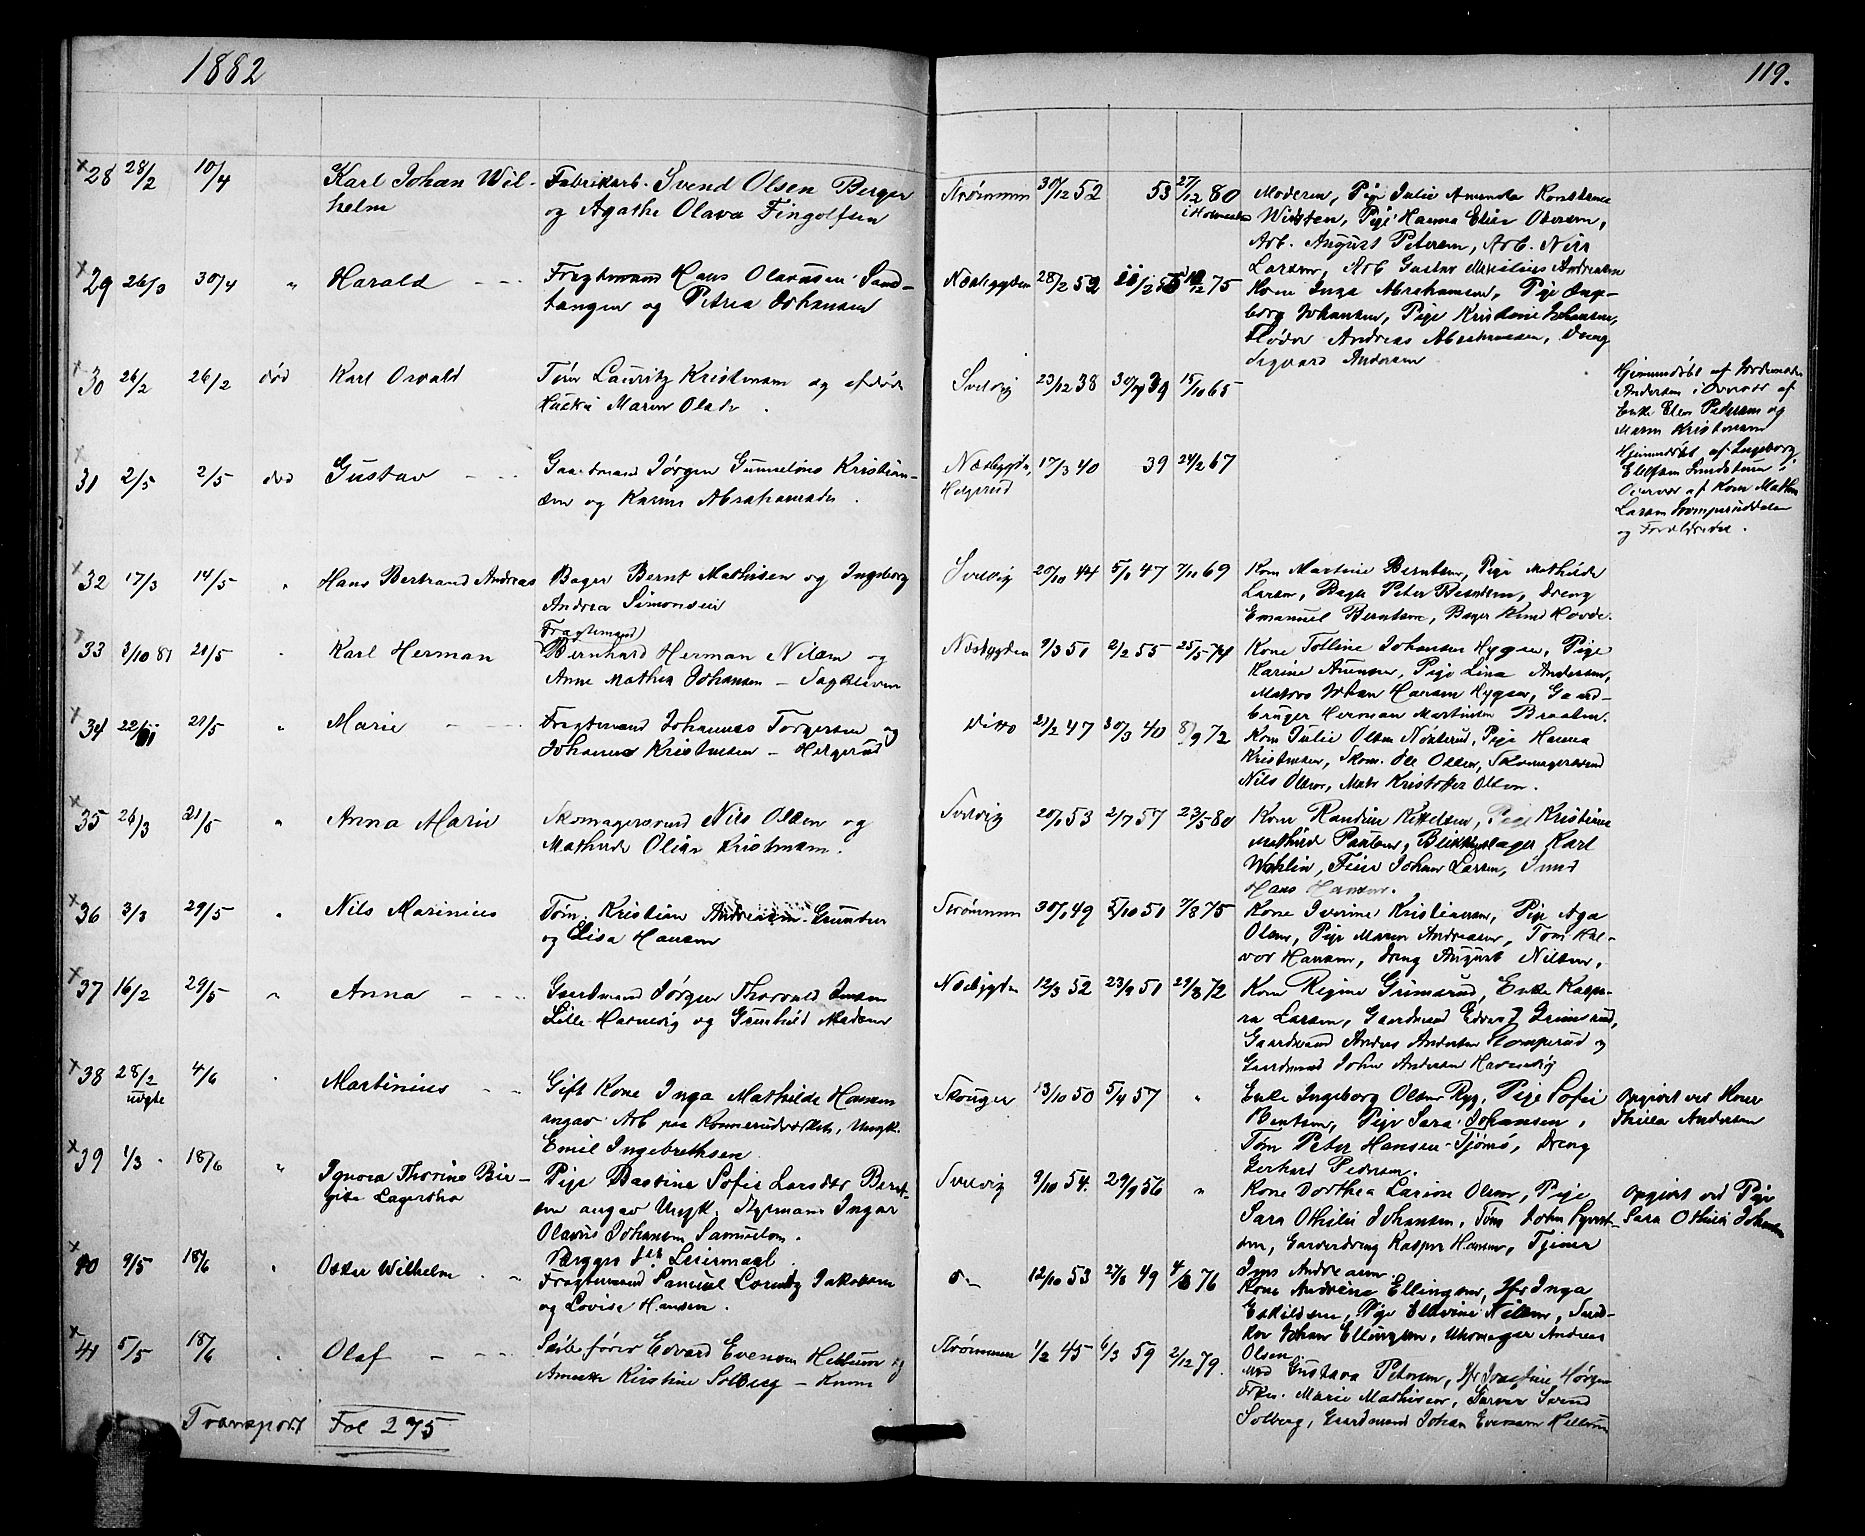 1882
119.
28 28/2 10/4 Karl Johan Wil-
helm
Fabrikarb. Svend Olsen Berger
og Agathe Olava Fingolfsen
Strømmen 30/12 52 53 27/12 80
Moderen, Pige Julie Amunda Konstance
Winsten, Pige Hanna Elise Olsen,
Arb. August Petersen, Arb. Nils
Larsen, Arb Gustav Andreasen
29 26/3 30/4 " Harald
Fragtmand Hans Olausen Sand-
tangen og Petrea Johansen
Nesbygden 28/2 52 75
Kone Inga Abrahamsen, Pige Inge-
borg Johansen, Pige Kristine Johansen,
Andreas Abrahamsen, Dreng
Sigvard Andersen
30 26/2 26/2 død Karl Osvald
Tøm Lauritz Kristensen og afdøde
Maren Olsdr.
Svelvig 23/12 38 39 15/10 65
Hjemmedøbt af
Andersen i Overvær af
Enke Elen Pedersen og
Maren Kristensen
31 2/5 2/5 død Gustav
Gaardmand Jørgen Gunnelius Kristian-
sen og Karine Abrahamsdr.
Nesbygden,
Helgerud
17/3 40 39 24/2 67
Hjemmedøbt af Ingeborg
Ellefsen i
Overvær af Kone Mathea
Larsen
og Forældrene.
32 17/3 14/5 " Hans Bertrand Andreas
Bager Bernt Mathisen og Ingeborg
Andrea Simonsen
Svelvig 20/10 44 5/1 47 7/11 69
Kone Martine Berntsen, Pige Mathilde
Larsen, Bager Peter Berntsen, Dreng
Emanuel Berntsen, Bager Knud Hovde.
33 3/10 81 21/5 " Karl Herman
Fragtemand
Bernhard Herman Nilsen og
Anne Mathea Johansen - Sagkleven
Nesbygden 9/3 50 2/2 55 25/5 74
Kone Tolline Johansen Hygen, Pige
Karine Ancnsen, Pige Lina Andersen,
Matros Johan Hansen Hygen, Gaard-
bruger Herman Martinsen Braaten.
34 21/5 " Marie
Fragtemand Johannes Torgersen og
Johanne Kristensen - Helgerud
Ditto 21/2 47 30/3 40 8/9 72
Kone Julie Olsen Nøsterud, Pige Hanna
Kristensen, Skom. Ole Olsen, Skomagersvend
Nils Olsen, Matr Kristoffer Olsen.
35 26/3 21/5 " Anna Marie
Skomagersvend Nils Olsen og
Mathilde Olise Kristensen.
Svelvig 20/1 53 2/7 57 23/5 80
Kone Randine Kittelsen, Pige Kristiane
Mathilde Paulsen, Blikkenslager Karl
Wahlin, Feier Johan Larsen, Smed
Hans Hansen.
36 3/3 29/5 " Nils Marinius
Tøm. Kristian Andreasen Grunden
og Elisa Hansen
Strømmen 30/1 49 5/10 51 7/8 75
Kone Iverine Kristiansen, Pige Aga
Olsen, Pige Maren Andreasen, Tøm Hal-
vor Hansen, Dreng August Nilsen,
37 16/2 29/5 " Anna
Gaardmand Jørgen Thorvald Jensen
Lille Havnevig og Gunhild Madsen
Nesbygden 12/3 52 23/9 51 29/3 72
Kone Regine Grimsrud, Enke Kaspa-
ra Larsen, Gaardmand Edvard Grimsrud,
Gaardmand Anders Andersen Stomperud og
Gaardmand John Andersen Havnevig
38 28/2 4/6 " Martinius
uægte
Gift Kone Inga Mathilde Hansen
angav Arb paa Konnerudværket, Ungk.
Emil Ingebrethsen
Skouger 13/10 50 5/4 57 "
Enke Ingeborg Olsen Ryg, Pige Sofie
Berntsen, Pige Sara Johansen,
Tøm Peter Hansen Tjømø, Dreng
Gerhard Pedersen.
Opgivet ved Kone
Thilla Andersen
39 1/3 18/6 " Ignora Thorine Bir-
gitte Lagertha
Pige Bastine Sofie Larsdtr Bernt-
sen angav Ungk. Styrmand Ingar
Olavus Johansen Samuelson.
Bægges 1ste Leiermaal.
Svelvig 9/10 54. 29/9 56 "
Kone Dorthea Larine Olsen, Pige
Sara Othilie Johansen, Tøm John Syvert-
sen, Garverdreng Kasper Hansen, Tjener
Jens Andreasen.
Opgivet ved Pige
Sara Othilie Johansen
40 9/5 18/6 " Oskar Wilhelm
Fragtemand Samuel Lorentz Jakobsen
og Lovise Hansen.
12/10 53 27/8 49 4/8 76
Kone Andrine Ellingsen, Jfr Inga
Eskildsen, Pige Ellevine Nilsen, Sned-
ker Johan Ellingsen, Uhrmager Andreas
Olsen.
41 5/5 18/6 " Olaf
Skibsfører Edvard Evensen Hellum og
Annette Kirstine Solberg - Knem
Strømmen 1/2 45 6/3 59 2/12 79.
Mad Gustava Petersen, Jfr Josefine Hørgen
Frkn. Marie Mathisen, Garver Svend
Solberg, Gaardmand Johan Evensen Hellum
Transport Fol 275